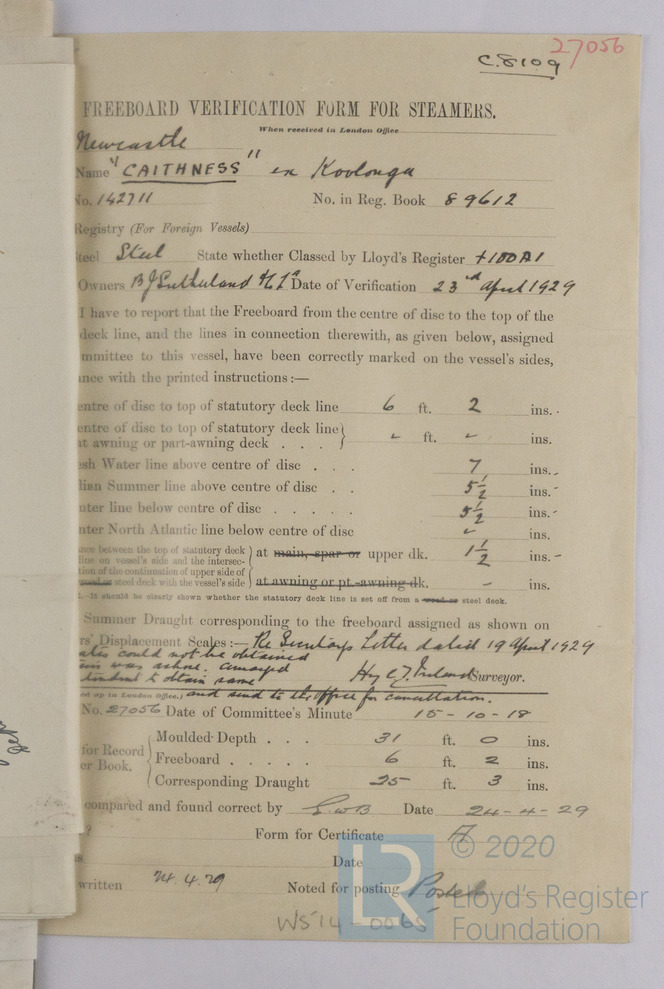 27056
C.8109
FREEBOARD VERIFICATION FORM FOR STEAMERS.
When received in London Office
Newcastle
Name "CAITHNESS" ex Koolonga
No. 142711 No. in Reg. Book 89612
Registry (For Foreign Vessels)
teel Steel State whether Classed by Lloyd's Register +100A1
Owners B J Sutherland & Co Ld Date of Verification 23rd April 1929
I have to report that the Freeboard from the centre of disc to the top of the
deck line, and the lines in connection therewith, as given below, assigned
mmittee to this vessel, have been correctly marked on the vessel's sides,
nce with the printed instructions:—
entre of disc to top of statutory deck line 6 ft. 2 ins.
entre of disc to top of statutory deck line
at awning or part-awning deck . . . " ft. " ins.
esh Water line above centre of disc . . . 7 ins.
dian Summer line above centre of disc . . 5½ ins.
nter line below centre of disc . . . . . 5½ ins.
nter North Atlantic line below centre of disc " ins.
ance between the top of statutory deck
line on vessel's side and the intersec- at main, spar or upper dk. 1½ ins.
tion of the continuation of upper side of
wood or steel deck with the vessel's side at awning or pt.-awning dk. - ins.
.-It should be clearly shown whether the statutory deck line is set off from a wood or steel deck.
Summer Draught corresponding to the freeboard assigned as shown on
rs' Displacement Scales:— Re Secretarys Letter dated 19 April 1929
could not be obtained
was ashore.
to obtain same Surveyor.
ed up in London Office.) and send to the office for cancellation.
No. 27056 Date of Committee's Minute 15-10-18
Moulded Depth . . . 31 ft. 0 ins.
for Record
er Book. Freeboard . . . . . 6 ft. 2 ins.
Corresponding Draught 25 ft. 3 ins.
compared and found correct by E.W.B Date 24-4-29
? Form for Certificate A
s Date
written 24.4.29 Noted for posting Posted
WS14-0065
LR
© 2020
Lloyd's Register
Foundation